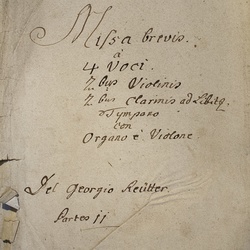 Missa brevis.
à
4 Voci.
2 bus Violinis
2 bus Clarinis ad Libitq.
Tympano
con
Organo è Violone
Del Georgio Reütter.
Partes 11